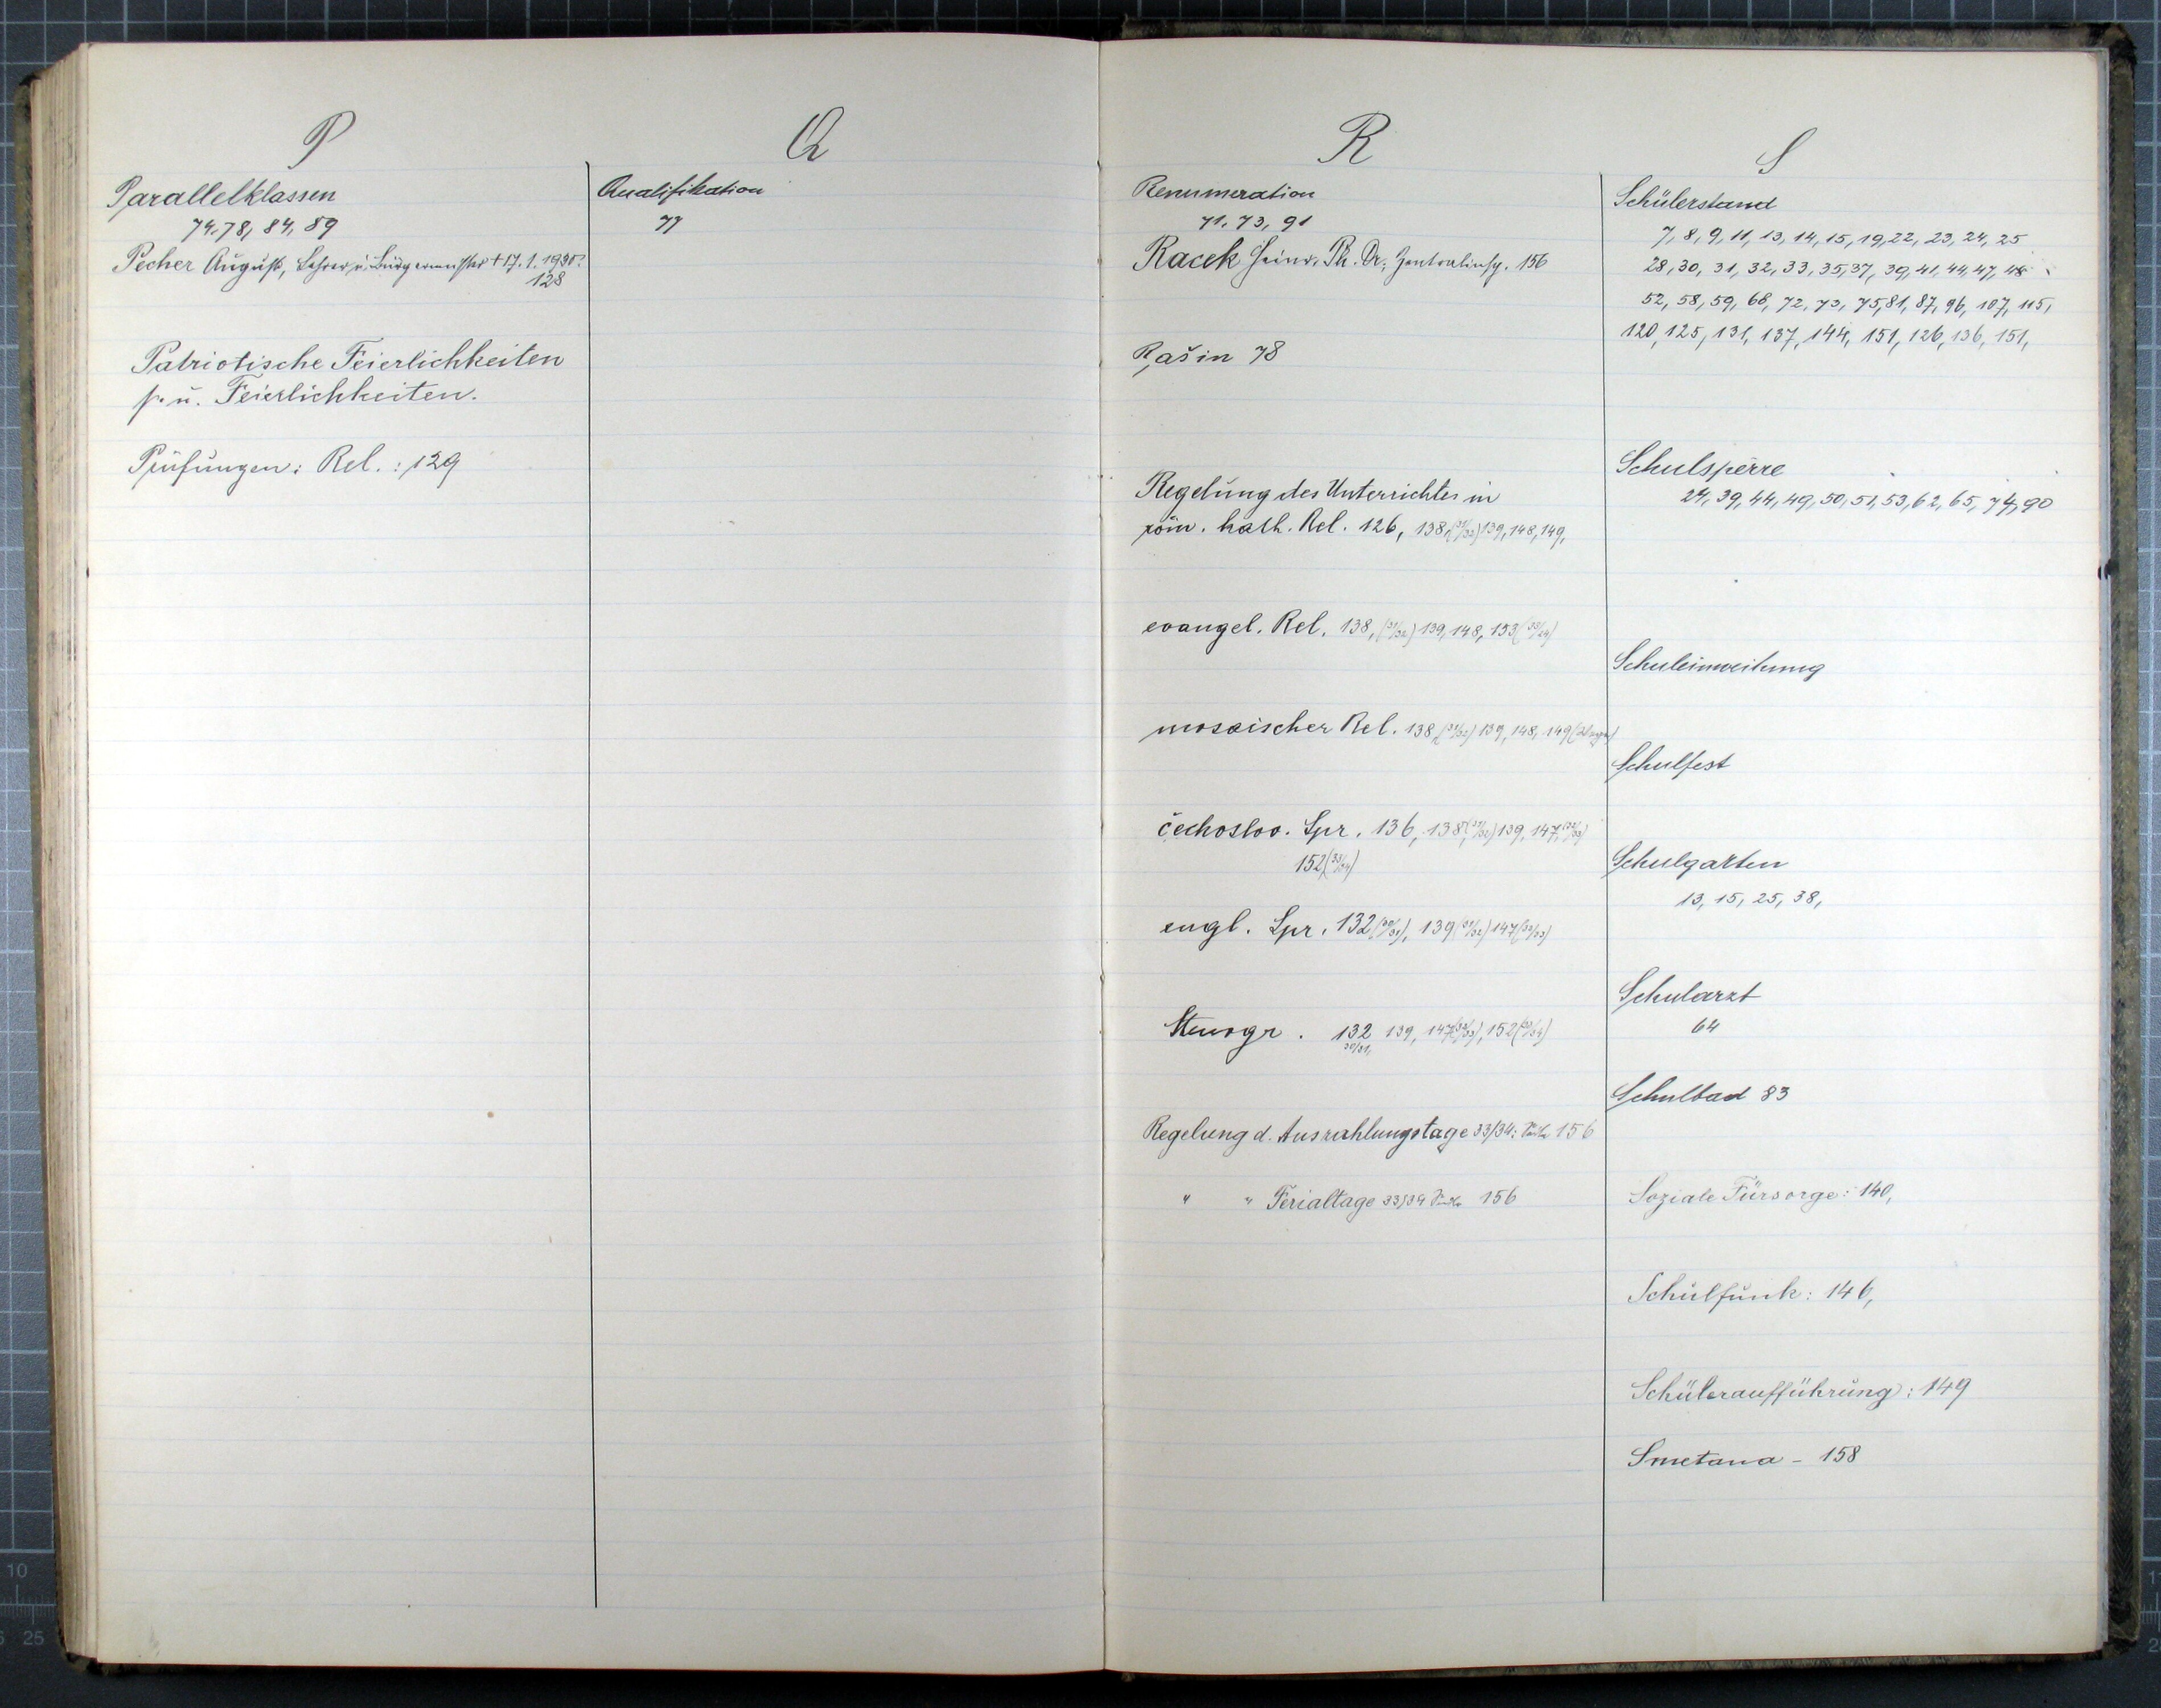 P
Parallelklassen
74, 78, 84, 89
Pecher August, Lehrer u. Bürgermeister + 17. 1. 1930.
128
Patriotische Feierlichkeiten
s. u. Feierlichkeiten.
Prüfungen: Rel.: 129
Q
Qualifikation
77
R
Renumeration
71, 73, 91
Racek Heinr. Ph. Dr., Zentralinsp. 156
Rašin 78
Regelung des Unterrichtes in
röm. kath. Rel. 126, 138, (31/32) 139, 148, 149,
evangel. Rel. 138, (31/32) 139, 148, 153 (33/34)
mosaischer Rel. 138, (31/32) 139, 148, 149
čechoslov. Spr. 136, 138, (31/32) 139, 147, (32/33)
152 (33/34)
engl. Spr. 132 (30/31), 139 (31/32) 147 (32/33)
Stenogr. 132 139, 147 (32/33), 152 (33/34)
30/31,
Regelung d. Auszahlungstage 33/34: 156
" " Ferialtage 33/34 156
S
Schülerstand
7, 8, 9, 11, 13, 14, 15, 19, 22, 23, 24, 25
28, 30, 31, 32, 33, 35, 37, 39, 41, 44, 47, 48
52, 58, 59, 68, 72, 73, 75, 81, 87, 96, 107, 115,
120, 125, 131, 137, 144, 151, 126, 136, 151,
Schulsperre
24, 39, 44, 49, 50, 51, 53, 62, 65, 74, 90
Schuleinweihung
Schulfest
Schulgarten
13, 15, 25, 38,
Schularzt
64
Schulbad 83
Soziale Fürsorge: 140,
Schulfunk: 146,
Schüleraufführung: 149
Smetana - 158
10
25